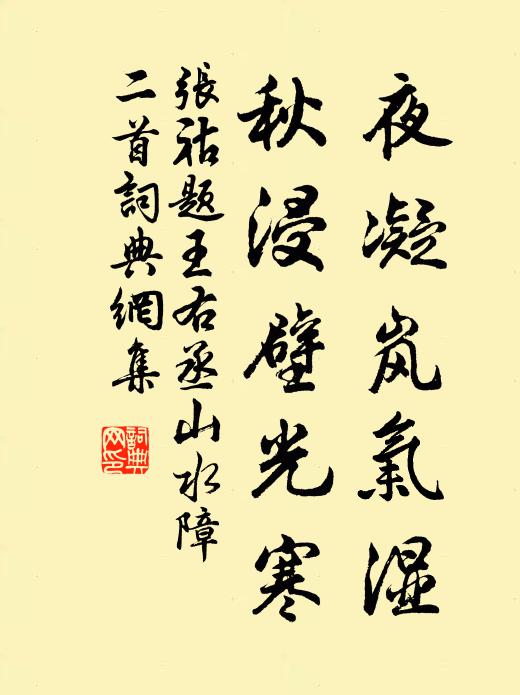 夜凝岚氣湿
秋浸壁光寒
張祜題王右丞山水障
二首詞典網集
詞典網印